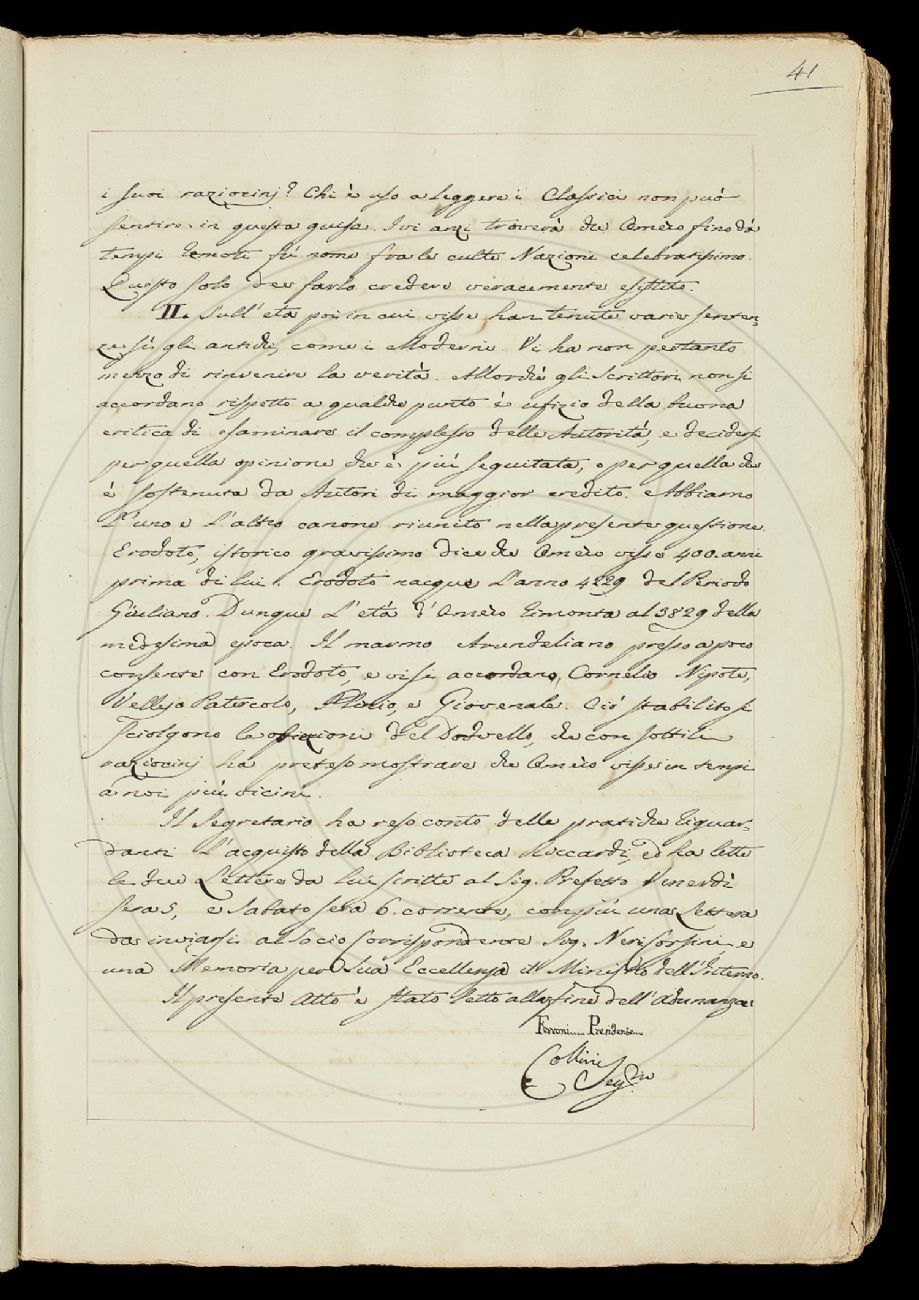 41
i suoi raziocinj? Chi è uso a leggere i Classici non può
sentire in questa guisa. Ivi anzi troverà che Omero fino da'
tempi remoti fù nome fra le culte Nazioni celebratissimo.
Questo solo dee farlo credere veracemente esistito.
II. Sull'età poi in cui visse han tenute varie senten=
ze sì gli antichi, come i Moderni. Vi ha non pertanto
mezzo di rinvenire la verità. Allorchè gli Scrittori non si
accordano rispetto a qualche punto è ufizio della buona
critica di esaminare il complesso delle Autorità, e decidersi
per quella opinione che è più seguitata, o per quella che
è sostenuta da Autori di maggior credito. Abbiamo
l'uno e l'altro canone riunito nella presente questione.
Erodoto, istorico gravissimo dice che Omero visse 400. anni
prima di lui. Erodoto nacque l'anno 4229 del Periodo
Giuliano. Dunque l'età d'Omero rimonta al 3829 della
medesima epoca. Il marmo Arundeliano presso a poco
consente con Erodoto, e vi si accordano, Cornelio Nipote,
Vellejo Patercolo, Plinio, e Giovenale. Ciò stabilito si
sciolgono le obiezioni del Dodwello, che con sottili
raziocinj ha preteso mostrare che Omero visse in tempi
a noi più vicini.
Il Segretario ha reso conto delle pratiche riguar=
danti l'acquisto della Biblioteca Riccardi, ed ha lette
le due Lettere da lui scritte al Sig. Prefetto Venerdì
sera 5, e Sabato sera 6. corrente, con più una Lettera
da inviarsi al Socio Corrispondente Sig. Neri Corsini e
una Memoria per Sua Eccellenza il Ministro dell'Interno.
Il presente Atto è stato letto alla fine dell'Adunanza.
Ferroni Presidente
Collini Seg.rio